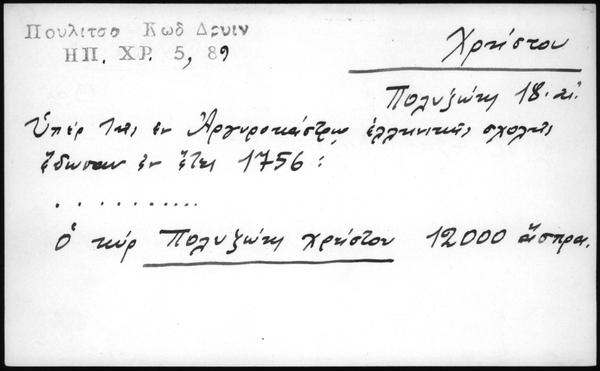 Πουλιτσα Κωδ Δρυιν
ΗΠ. ΧΡ. 5, 89
Χρήστου
Πολυζώης 18. αἰ.
Ὑπὲρ τῆς ἐν Ἀργυροκάστρῳ ἑλληνικῆς σχολῆς
ἔδωσαν ἐν ἔτει 1756 :
. . . . . . . . . .
Ὁ κύρ Πολυζώης Χρήστου 12000 ἄσπρα.